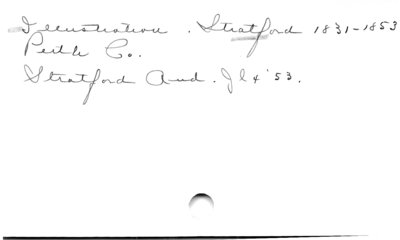 Illustration. Stratford 1831-1853
Perth Co.
Stratford Aud. Jl 4 '53.